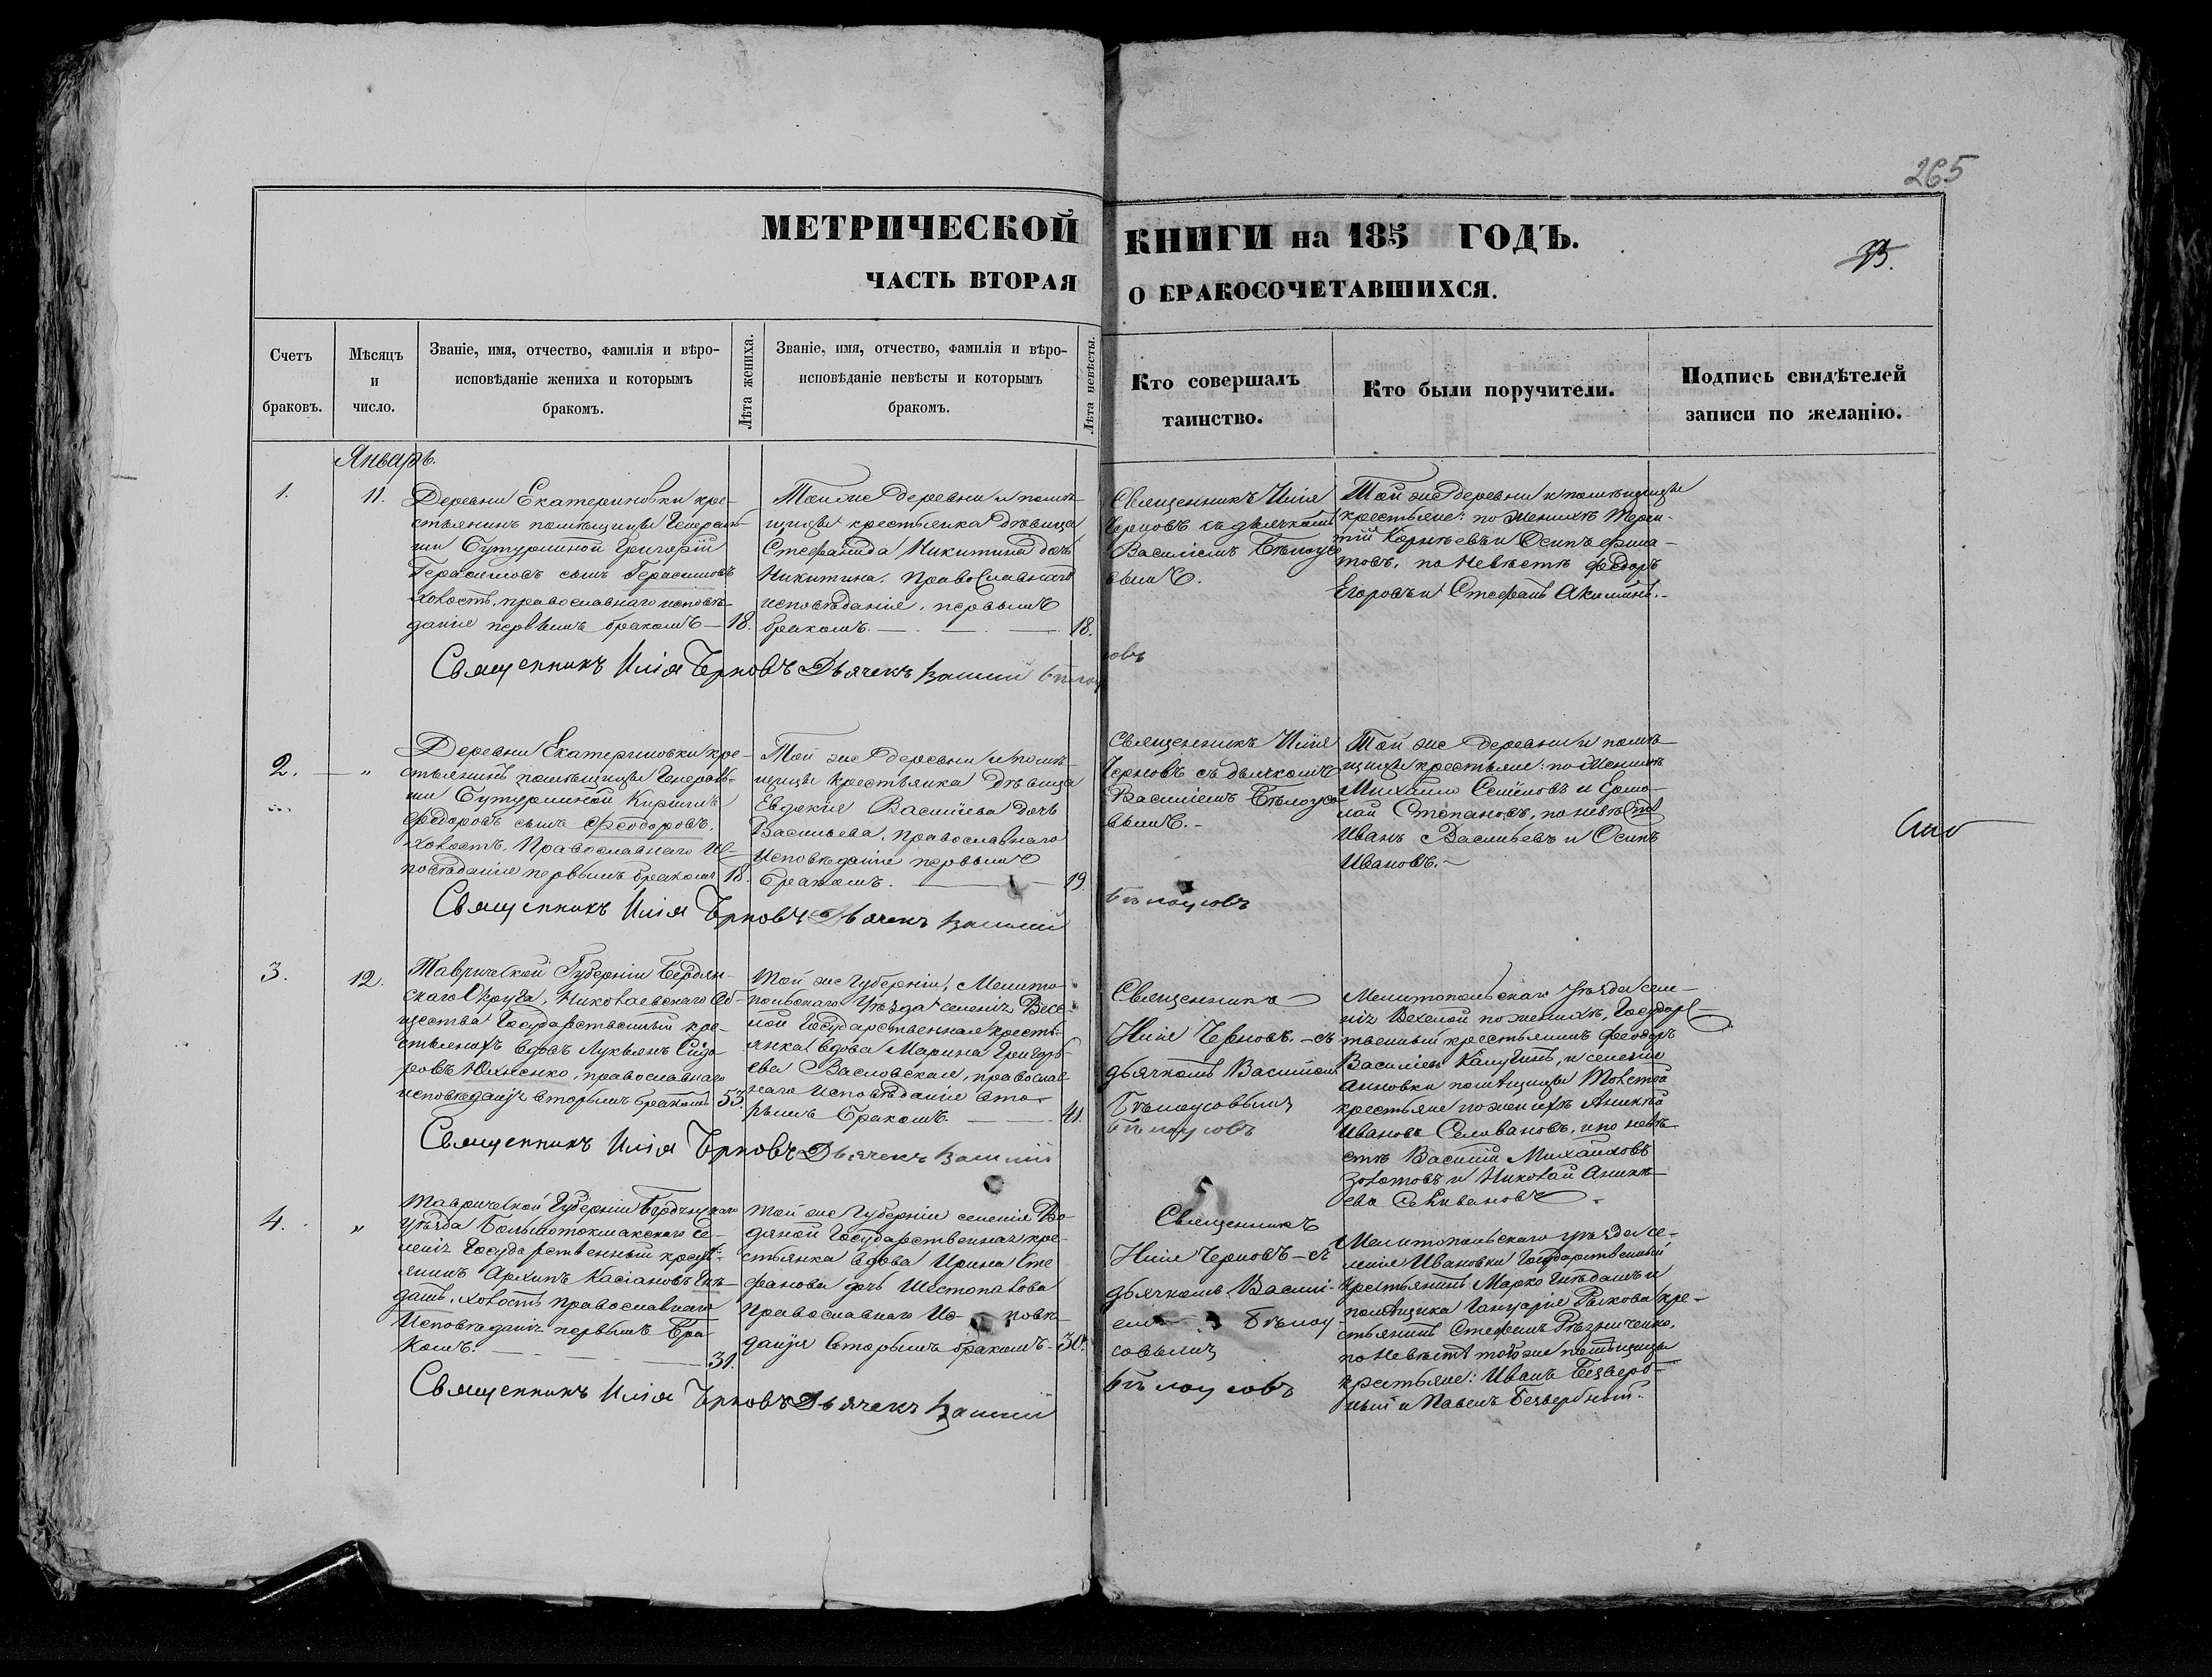 265
МЕТРИЧЕСКОЙ КНИГИ на 185 ГОДЪ.
ЧАСТЬ ВТОРАЯ О БРАКОСОЧЕТАВШИХСЯ.
Счетъ
браковъ.
Мѣсяцъ
и
число.
Званіе, имя, отчество, фамилія и вѣро-
исповѣданіе жениха и которымъ
бракомъ.
Лѣта жениха.
Званіе, имя, отчество, фамилія и вѣро-
исповѣданіе невѣсты и которымъ
бракомъ.
Лѣта невѣсты.
Кто совершалъ
таинство.
Кто были поручители.
Подпись свидѣтелей
записи по желанію.
Январь.
1.
11.
Деревни Екатериновки кре-
стьянинъ помѣщицы Генераль-
ши Бутурлиной Григорій
Герасимовъ сынъ Герасимовъ
холостъ, православнаго исповѣ-
данія первымъ бракомъ —
18.
Той же деревни и помѣ-
щицы крестьянка дѣвица
Стефанида Никитина дочь
Никитина, Православнаго
исповѣданія, первымъ
бракомъ.
18.
Священникъ Илія
Черновъ съ дьячкомъ
Василіемъ Бѣлоусо
вымъ.
Той же деревни и помѣщицы
крестьяне: по женихѣ
Корнѣевъ и Осипъ
по невѣстѣ Федоръ
Егоровъ и Стефанъ Акимовъ.
Священникъ Илія Черновъ Дьячекъ Василий Бѣлоусовъ
2.
"
Деревни Екатериновки кре-
стьянинъ помѣщицы Генераль-
ши Бутурлиной Кирилъ
Федоровъ сынъ Феодоровъ,
холостъ, Православнаго Ис-
повѣданія первымъ бракомъ
18.
Той же деревни и помѣ-
щицы крестьянка дѣвица
Евдокія Василіева дочь
Васильева, православнаго
Исповѣданія первымъ
бракомъ.
19.
Священникъ Илія
Черновъ съ дьячкомъ
Василіемъ Бѣлоусо
вымъ.
Той же деревни и помѣ-
щицы крестьяне: по женихѣ
Михаило Семеновъ и Ермо-
лай Степановъ, по невѣстѣ
Иванъ Васильевъ и Осипъ
Ивановъ.
Священникъ Илія Черновъ Дьячекъ Василий Бѣлоусовъ
3.
12.
Таврической Губерніи Бердян-
скаго Округа, Николаевскаго Об-
щества Государственный кре-
стьянинъ вдовъ Лукьянъ Сидо
ровъ Юхненко, православнаго
исповѣданія вторымъ бракомъ
53.
Той же Губерніи, Мелито-
польскаго Уѣзда селенія Весе-
лой Государственная кресть-
янка вдова Марина Григорь-
ева Васловская, православ
наго Исповѣданія вто-
рымъ бракомъ.
41.
Священникъ
Илія Черновъ. — съ
дьячкомъ Василіемъ
Бѣлоусовымъ
Мелитопольскаго уѣзда селе-
нія Веселой по женихѣ, Государ-
твенный крестьянинъ Феодоръ
Василіевъ Калугинъ, и селенія
Анновки помѣщицы Товстой
крестьяне по женихѣ Аникѣй
Ивановъ Селивановъ, и по невѣ-
стѣ Василій Михайловъ
Золотовъ и Николай Аникѣ-
евъ Селивановъ
Священникъ Илія Черновъ Дьячекъ Василий Бѣлоусовъ
4.
"
Таврической Губерніи Бердянскаго
Уѣзда Большотокмакскаго Се-
ленія Государственный кресть-
янинъ Архипъ Касіановъ Гнѣ-
дашъ, холостъ православнаго
Исповѣданія первымъ Бра
комъ.
31.
Той же Губерніи селенія Во-
дяной Государственная кре-
стьянка вдова Ирина Сте
фанова дочь Шестопалова
православнаго Ис- повѣ-
данія вторымъ бракомъ.
30.
Священникъ
Илія Черновъ — съ
дьячкомъ Васили-
емъ Бѣлоу
совымъ
Мелитопольскаго уѣзда се-
ленія Ивановки Государственный
крестьянинъ Марко Гнѣдашъ и
помѣщика Гануарія Рыкова кре-
стьянинъ Стефанъ Рѣзниченко,
по Невѣстѣ той же помѣщицы
крестьяне: Иванъ Безверб-
ный и Павелъ Безвербный.
Священникъ Илія Черновъ Дьячекъ Василий Бѣлоусовъ